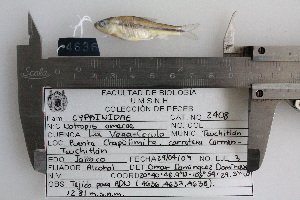 4636
Scala
FACULTAD DE BIOLOGIA
U.M.S.N.H.
COLECCIÓN DE PECES
Fam. CYPRINIDAE CAT. NO. 2408
N.C. Notropis amecae NO. COL.
CUENCA La Vega-Cocula MUNIC. Teuchitlán
LOC. Puente Chapulimita, carretera
Teuchitlán
EDO. Jalisco FECHA 29/04/09 NO. EJ. 3
FIJADOR Alcohol DET. Omar Domínguez Domínguez
N.M. COORD.
OBS. Tejido para ADN (4636, 4637, 4638).
1281 m.s.n.m.